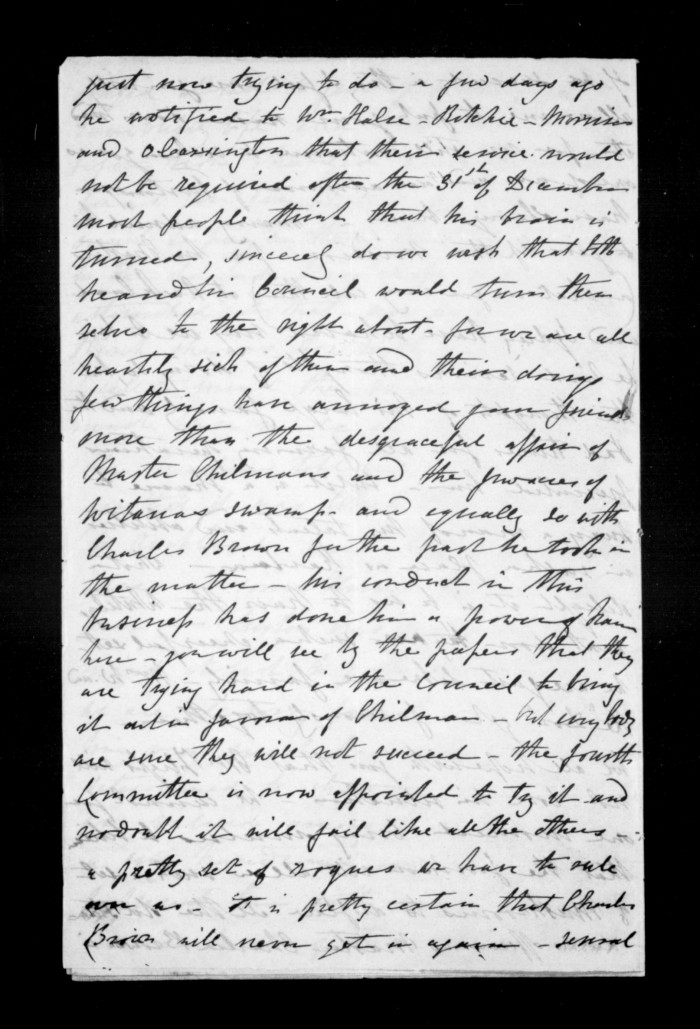 just now trying to do - a few days ago
he notified to Wm. Halse - Ritchie - Morrison
and that their service would
not be required after the 31st of December
most people think that his brain is
turned, sincerely do we wish that both
he and his Council would turn them
selves to the right about - for we are all
heartily sick of them and their doings
few things have annoyed your friends
more than the desgraceful affair of
Master Chilmans and the of
Witanas swamp - and equally so with
Charles Brown for the part he took in
the matter - his conduct in this
business has done him a power of harm
here - you will see by the papers that they
are trying hard in the Council to bring
it out in favour of Chilman - but every body
are sure they will not succeed - the fourth
Committee is now appointed to try it - and
no doubt it will fail like all the others -
a pretty set of rogues we have to rule
over us - it is pretty certain that Charles
Brown will never get in again - several